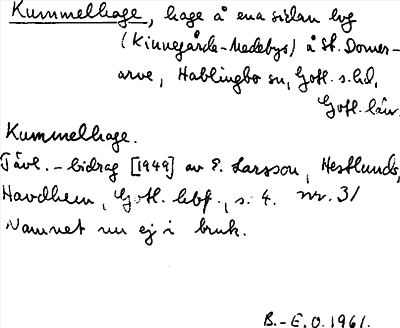 Kummelhage, hage å ena sidan lvg
(Kinnegårde-Medebys) å St. Domer-
arve, Hablingbo sn, Gotl. s. hd,
Gotl. län.
Kummelhage.
Tävl. - bidrag [1949] av E. Larsson, Hestlunds,
Havdhem, Gotl. hbf., s. 4. nr. 31
Namnet nu ej i bruk.
B.-E.O. 1961.